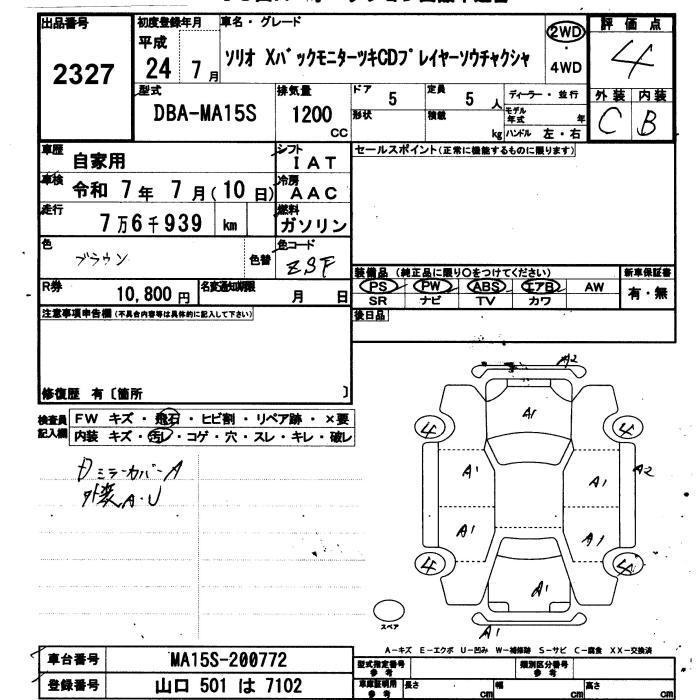 出品番号
2327
初度登録年月
平成
24 7月
車名・グレード
ソリオ XバックモニターツキCDプレイヤーソウチャクシャ
2WD
・
4WD
評価点
4
外装 内装
C B
型式
DBA-MA15S
排気量
1200
CC
ドア
5
定員
5 人
形状
積載
kg
ディーラー・並行
モデル年式 年
ハンドル 左・右
車歴
自家用
シフト
IAT
車検
令和 7年 7月(10日)
冷房
AAC
走行
7万6千939 km
燃料
ガソリン
色
ブラウン
色替
色コード
ZSF
R券
10,800円
名変通知期限
月 日
セールスポイント(正常に機能するものに限ります)
装備品 (純正品に限り○をつけてください)
PS PW ABS エアB AW
SR ナビ TV カワ
新車保証書
有・無
後日品
注意事項申告欄(不具合内容等は具体的に記入して下さい)
修復歴 有〔箇所 〕
検査員記入欄
FW キズ・飛石・ヒビ割・リペア跡・×要
内装 キズ・汚レ・コゲ・穴・スレ・キレ・破レ
ミラーカバーA
外装A.U
A2
A1
4 4
A1 A1 A2
A1 A1
4 4
A1
A1
スペア
A-キズ E-エクボ U-凹み W-補修跡 S-サビ C-腐食 XX-交換済
車台番号
MA15S-200772
登録番号
山口 501 は 7102
型式指定番号
参考
類別区分番号
参考
車庫証明用
参考
長さ cm
幅 cm
高さ cm